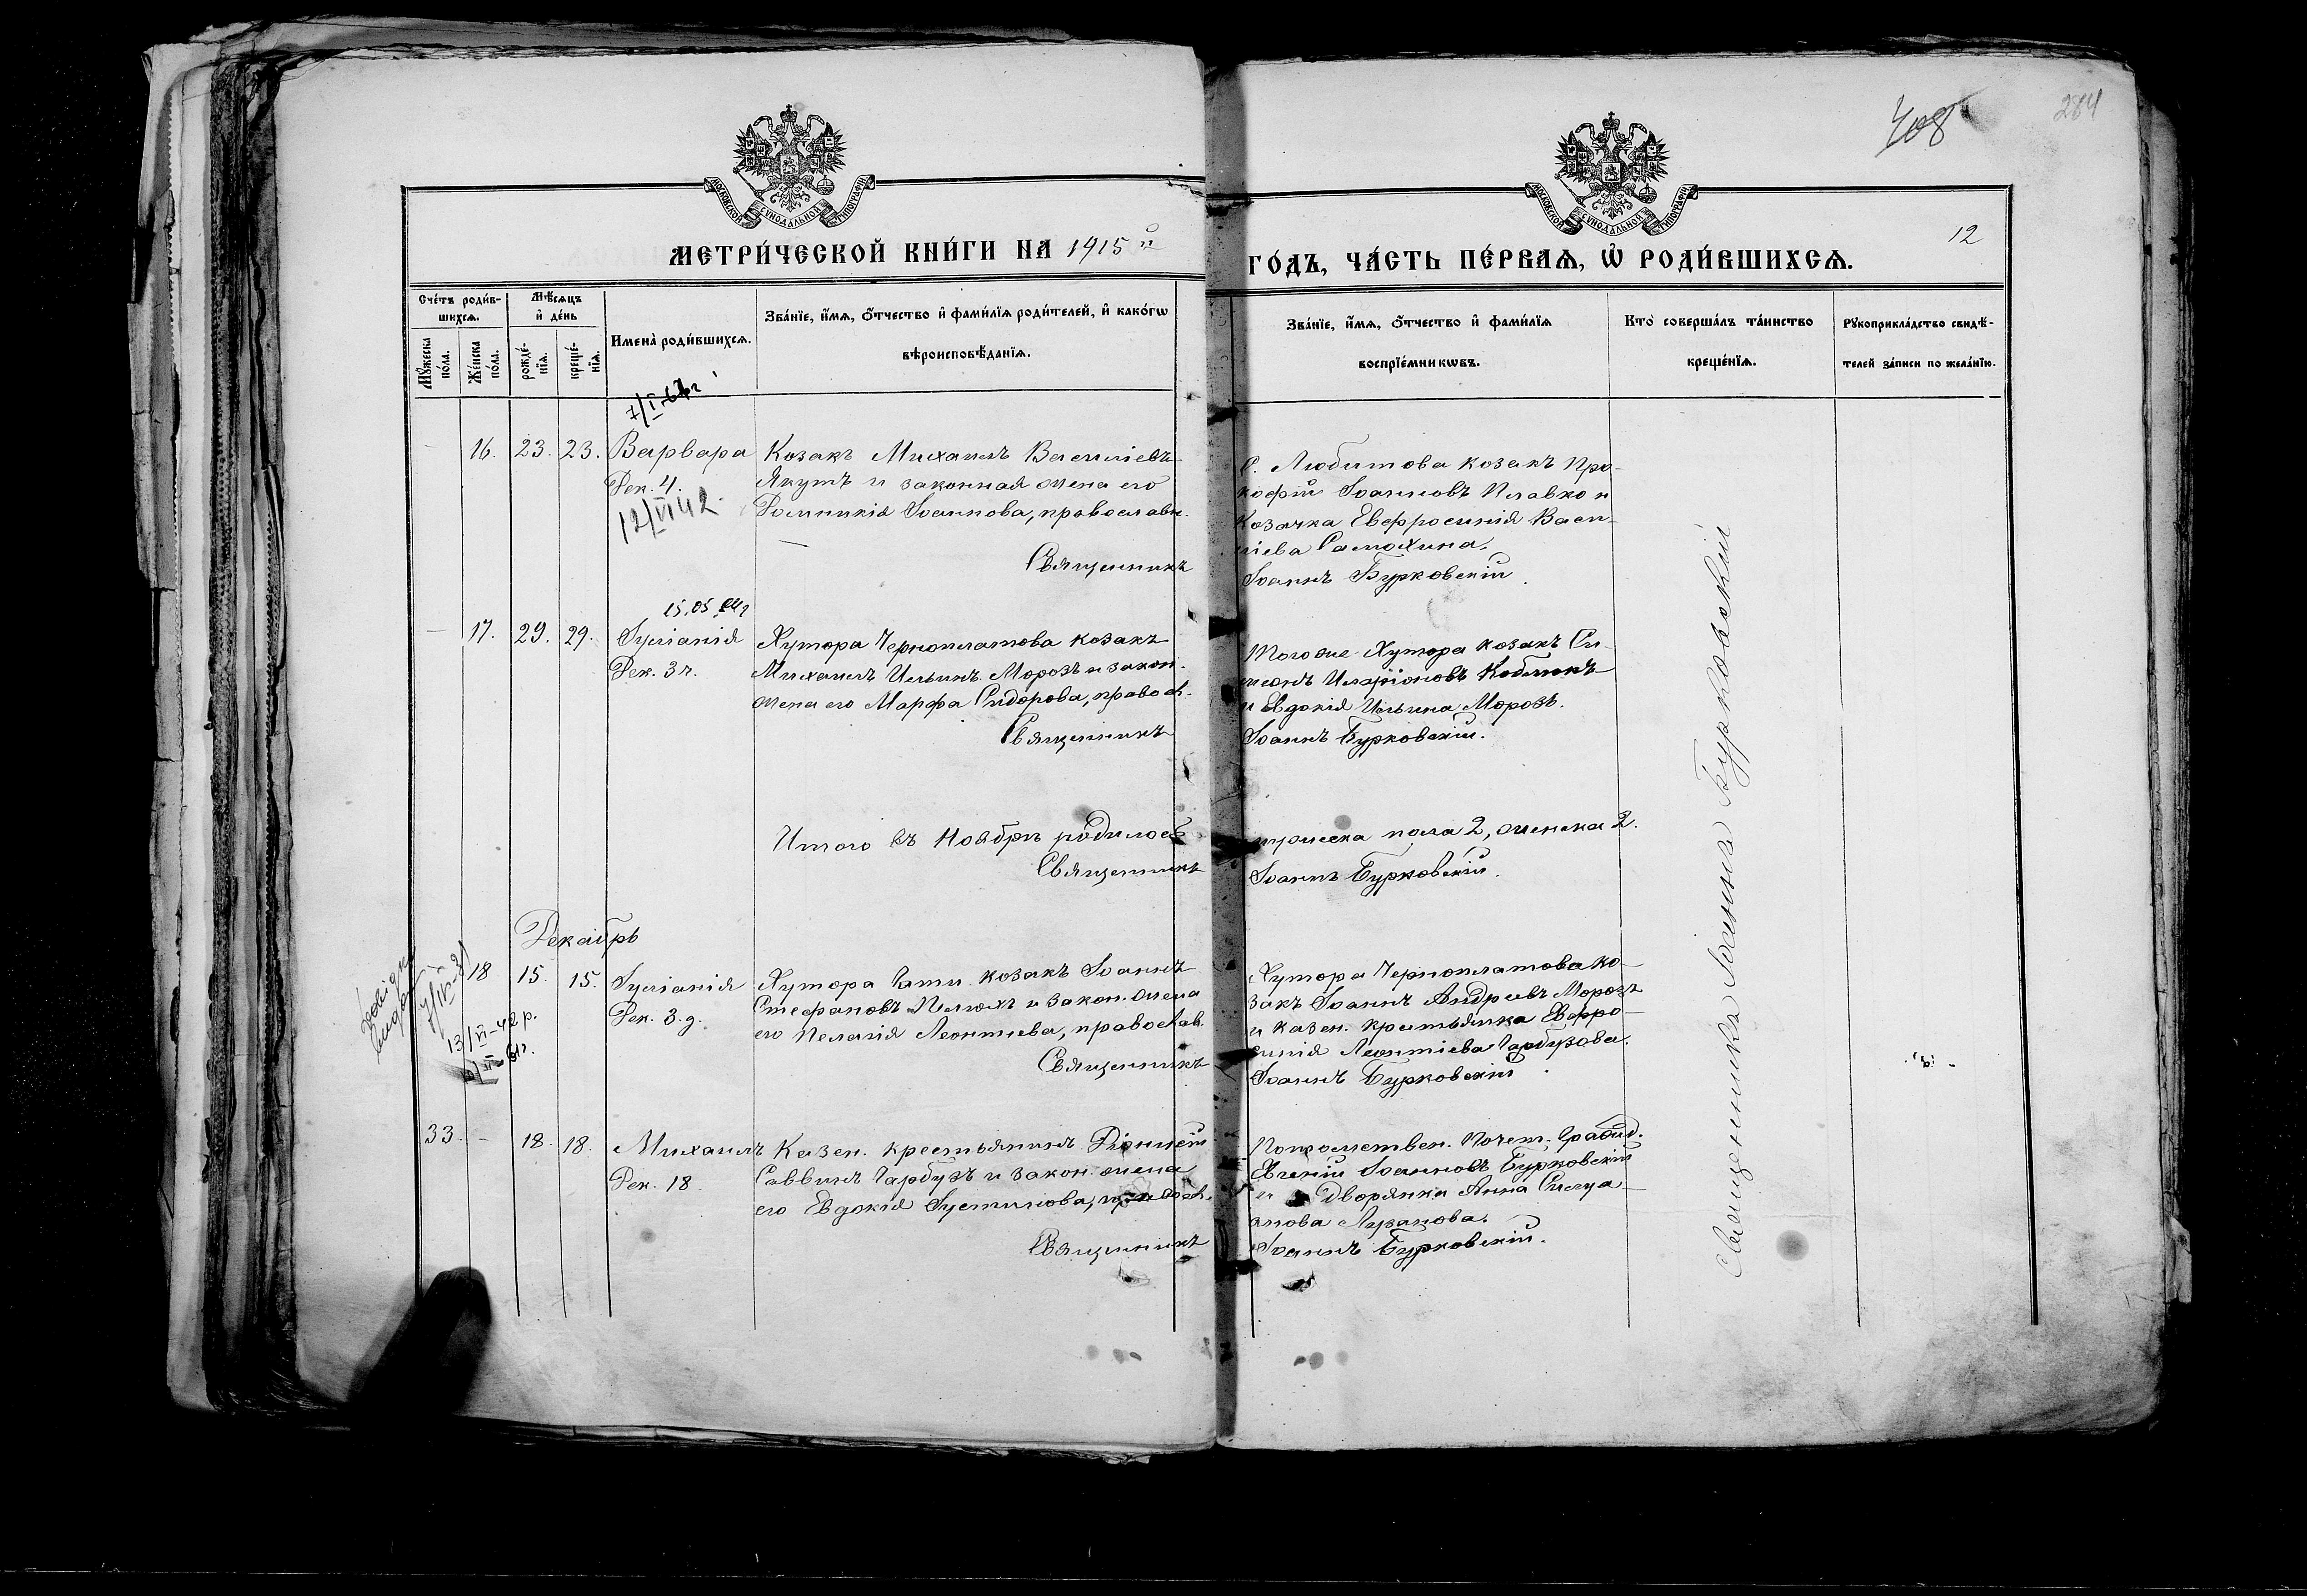 408
264
МОСКОВСКОЙ СѴНОДАЛЬНОЙ ТИПОГРАФІИ
МОСКОВСКОЙ СѴНОДАЛЬНОЙ ТИПОГРАФІИ
12
МЕТРИ́ЧЕСКОЙ КНИ́ГИ НА 1915 й
ГО́ДЪ, ЧА́СТЬ ПЕ́РВАѦ, Ѡ҆ РОДИ́ВШИХСѦ.
Сче́тъ роди́в-
шихсѧ.
Мꙋ́жеска по́ла.
Же́нска по́ла.
Мѣ́сѧцъ
и҆ де́нь
рожде́-
нїѧ.
креще́-
нїѧ.
Имена̀ роди́вшихсѧ.
Зва́нїе, и҆́мѧ, ѻ҆́тчество и҆ фами́лїѧ роди́телей, и҆ како́гѡ
вѣроисповѣ́данїѧ.
Зва́нїе, и҆́мѧ, ѻ҆́тчество и҆ фами́лїѧ
воспрїе́мникѡвъ.
Кто̀ соверша́лъ та́инство
креще́нїѧ.
Рꙋкоприкла́дство свидѣ́-
телей за́писи по жела́нїю.
16. 23. 23. Варвара
Дек. 4.
12/VI 42
Козакъ Михаилъ Василіевъ
Якутъ и законная жена его
Домникія Іоаннова, православн.
Священникъ
С. Любитова козакъ Про-
кофій Іоанновъ Плавко и
козачка Евфросинія Васи-
ліева Самохина.
Іоаннъ Бурковскій.
15.05
17. 29. 29. Іуліанія
Дек. 3 г.
Хутора Черноплатова козакъ
Михаилъ Ильинъ Морозъ и закон.
жена его Марфа Сидорова, правосл.
Священникъ
Того же Хутора козакъ Си-
меонъ Иларіоновъ Кобликъ
и Евдокія Ильина Морозъ.
Іоаннъ Бурковскій.
Итого въ Ноябрѣ родилось
Священникъ
мужеска пола 2, женска 2.
Іоаннъ Бурковскій.
Декабрь
13/VI-42 р.
18 15. 15. Іуліанія
Дек. 3. д.
Хутора козакъ Іоаннъ
Стефановъ и закон. жена
его Пелагія Леонтіева, православ.
Священникъ
Хутора Черноплатова ко-
закъ Іоаннъ Андреевъ Морозъ
и казен. крестьянка Евфро-
синія Леонтіева Гарбузова.
Іоаннъ Бурковскій
33. - 18. 18. Михаилъ
Дек. 18
Казен. крестьянинъ Діонисій
Саввинъ Гарбузъ и закон. жена
его Евдокія Іустинова, правосл.
Священникъ
Потомствен. Почет. Гражд.
Евгеній Іоанновъ Бурковскій
и дворянка Анна
Іоаннъ Бурковскій.
Священникъ Іоаннъ Бурковскій